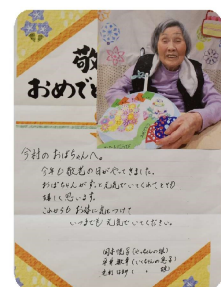 敬
おめでと
今村のおばちゃんへ。
今年も敬老の日がやってきました。
おばちゃんがずっと元気でいてくれて、とても
嬉しく思います。
これからもお体に気をつけて
いつまでも元気でいてください。